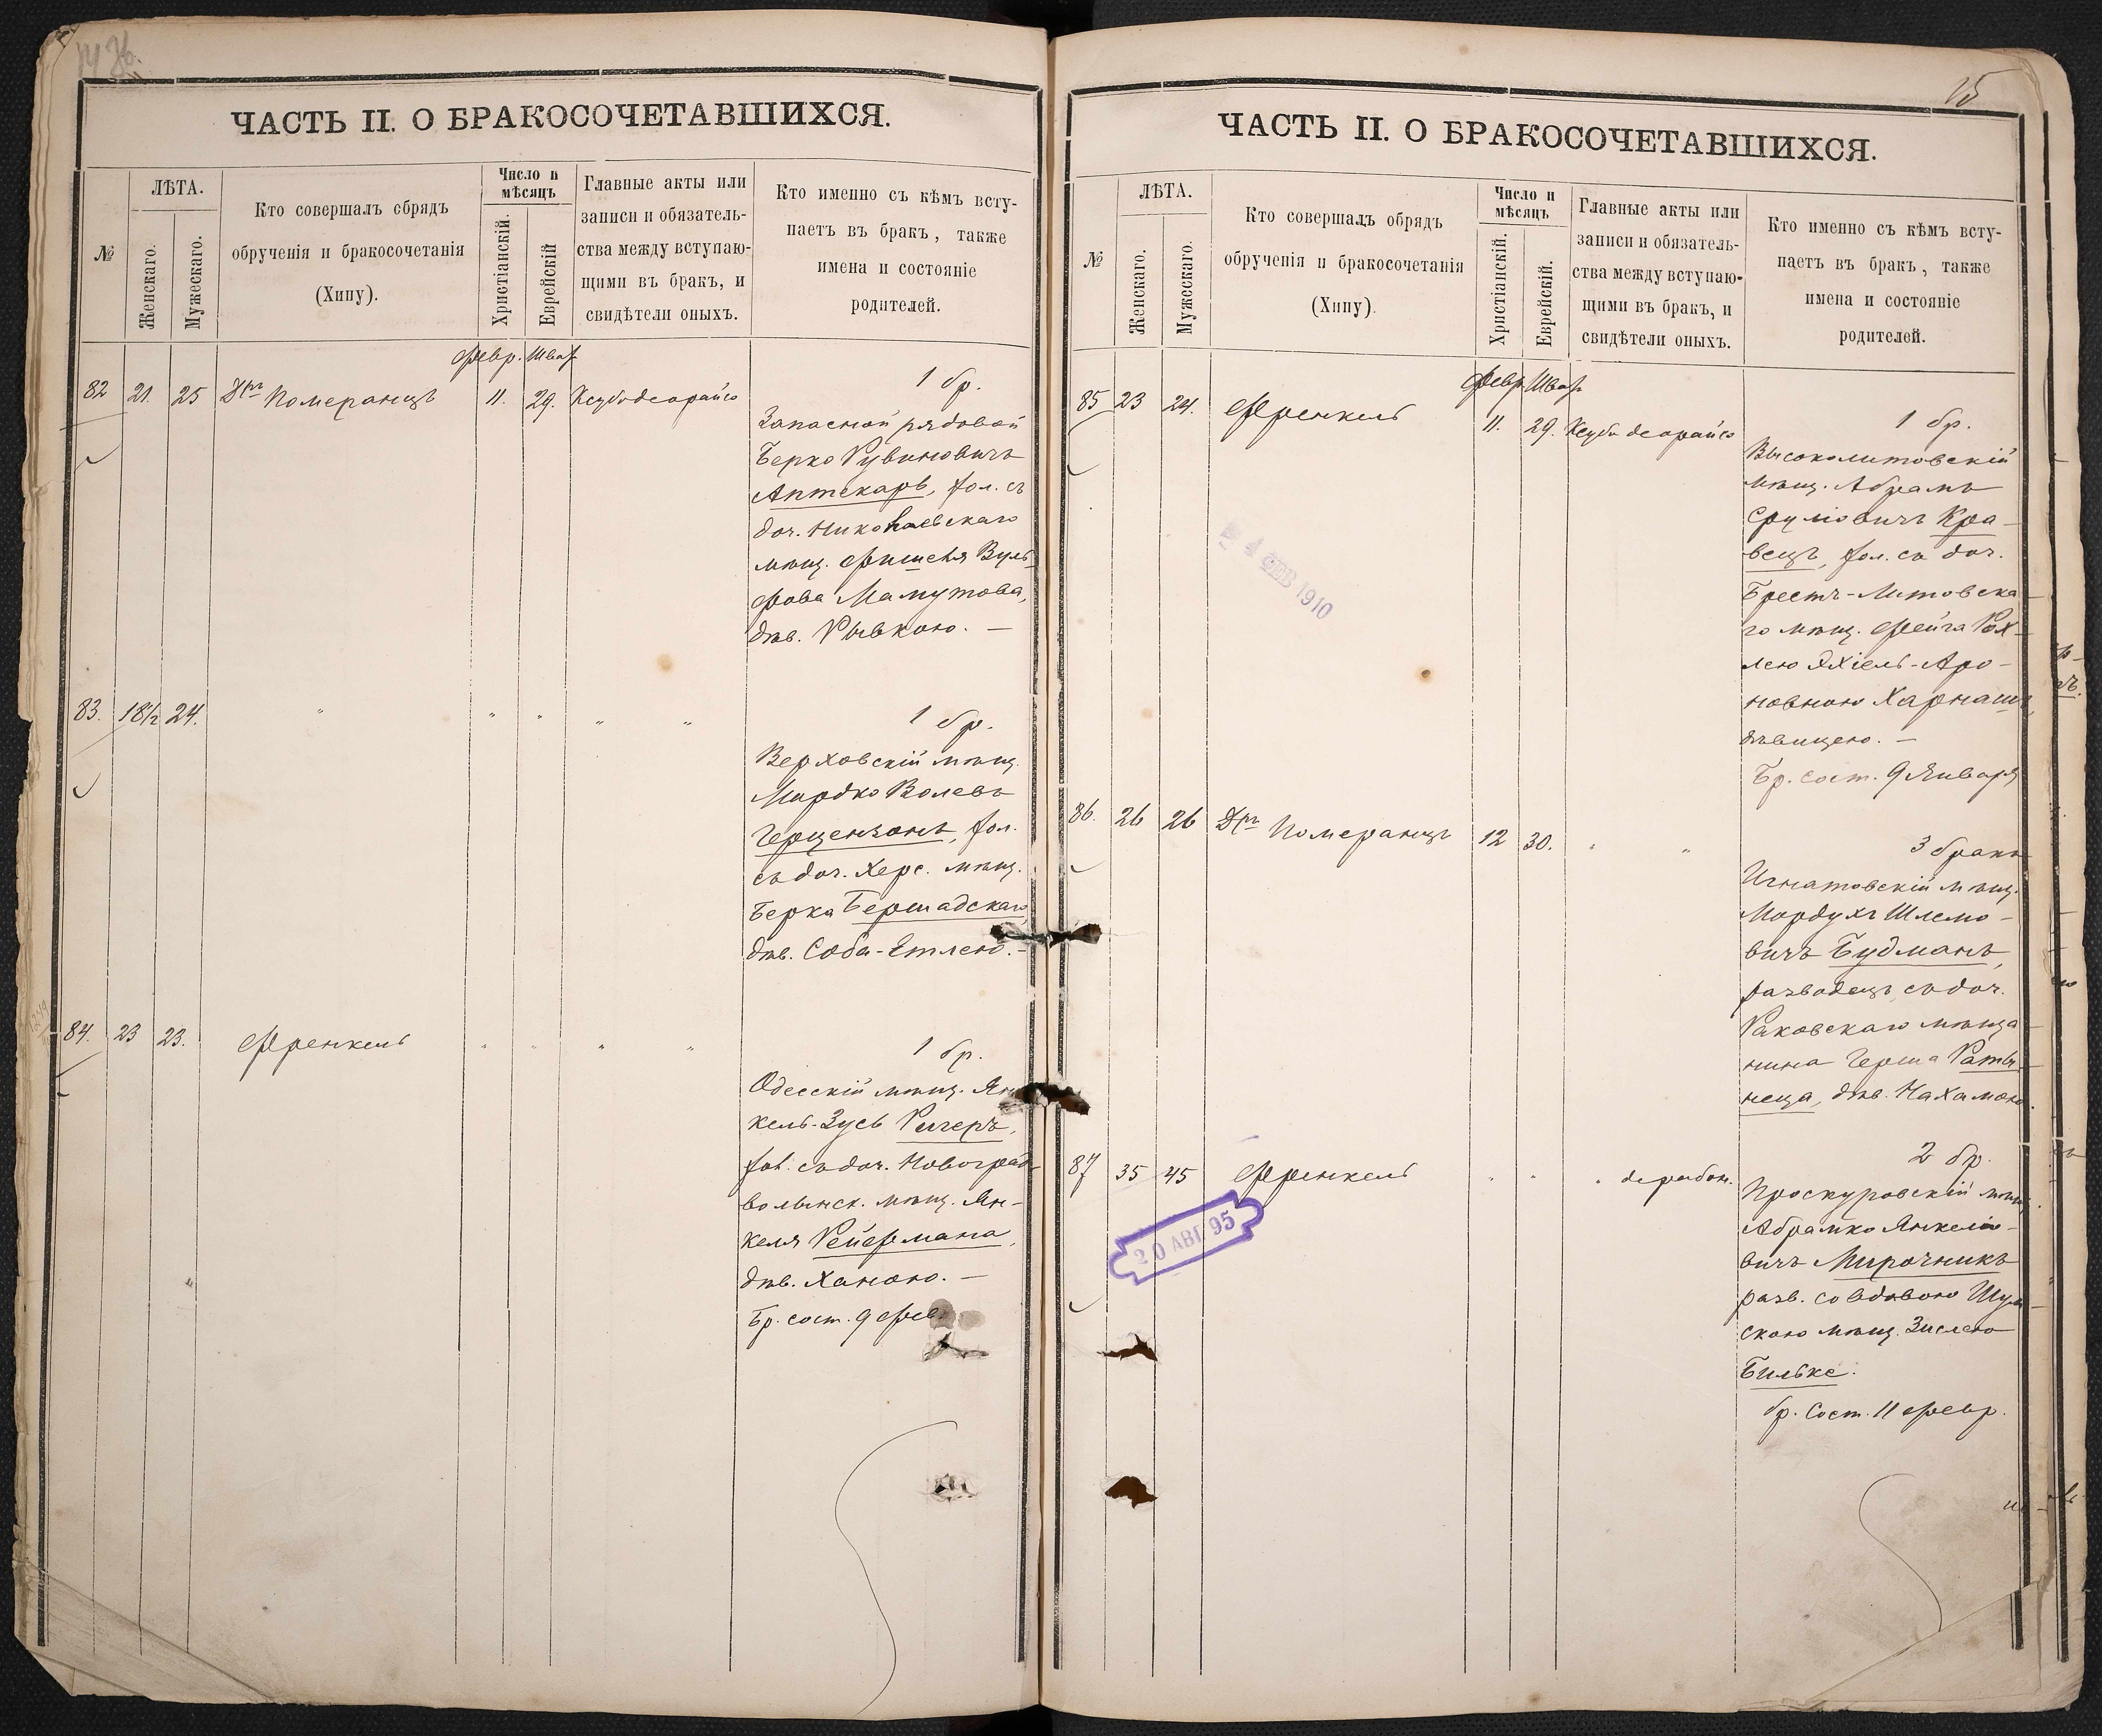 ЧАСТЬ II. О БРАКОСОЧЕТАВШИХСЯ.
№
ЛѢТА.
Женскаго.
Мужескаго.
Кто совершалъ обрядъ
обрученія и бракосочетанія
(Хипу).
Число и
мѣсяцъ
Христіанскій.
Еврейскій
Главные акты или
записи и обязатель-
ства между вступаю-
щими въ бракъ, и
свидѣтели оныхъ.
Кто именно съ кѣмъ всту-
паетъ въ бракъ, также
имена и состояніе
родителей.
Февр. Шват
82 21. 25 Померанцъ 11. 29.
1 бр.
Запасной рядовой
Берко Рувиновичъ
Аптекарь, хол. съ
доч. Николаевскаго
мѣщ. Фишеля Вуль-
фова Мамутова,
дѣв. Рывкою. —
83. 18½ 24. " " " " "
1 бр.
Верховскій мѣщ.
Мордко Волевъ
Герцензонъ, хол.
съ доч. Херс. мѣщ.
Берка Бершадскаго
дѣв. Соба-Етлею. —
84. 23 23. Френкель " " " "
1 бр.
Одесскій мѣщ. Ян
кель-Зусь Ричеръ,
хол. съ доч. Новоград-
волынск. мѣщ. Ян-
келя Рейфмана,
дѣв. Ханою. —
Бр. сост. 9 Фев
15
ЧАСТЬ II. О БРАКОСОЧЕТАВШИХСЯ.
№
ЛѢТА.
Женскаго.
Мужескаго.
Кто совершалъ обрядъ
обрученія и бракосочетанія
(Хипу).
Число и
мѣсяцъ
Христіанскій.
Еврейскій.
Главные акты или
записи и обязатель-
ства между вступаю-
щими въ бракъ, и
свидѣтели оныхъ.
Кто именно съ кѣмъ всту-
паетъ въ бракъ, также
имена и состояніе
родителей.
Февр Шват
85 23 24. Френкель 11. 29.
1 бр.
Высоколитовскій
мѣщ. Абрамъ
Сруліовичъ Кра-
вецъ, хол. съ доч.
Брестъ-Литовска-
го мѣщ. Фейга Рох-
лею Яхіель-Аро-
новною Харнашъ,
дѣвицею. —
Бр. сост. 9 Января
4 ФЕВ 1910
86. 26 26 Померанцъ 12 30. " "
3 бракъ
Игнатовскій мѣщ.
Мордухъ Шлемо-
вичъ Будманъ,
разводецъ съ доч.
Раковскаго мѣща-
нина Герша
неца, дѣв. Нахамою.
87 35 45 Френкель " " "
2 бр.
Проскуровскій мѣщ.
Абрамко Янкеліо-
вичъ Мирочникъ
разв. со вдовою
скою мѣщ. Зислею
Бильке.
бр. Сост. 11 Февр.
20 АВГ 95